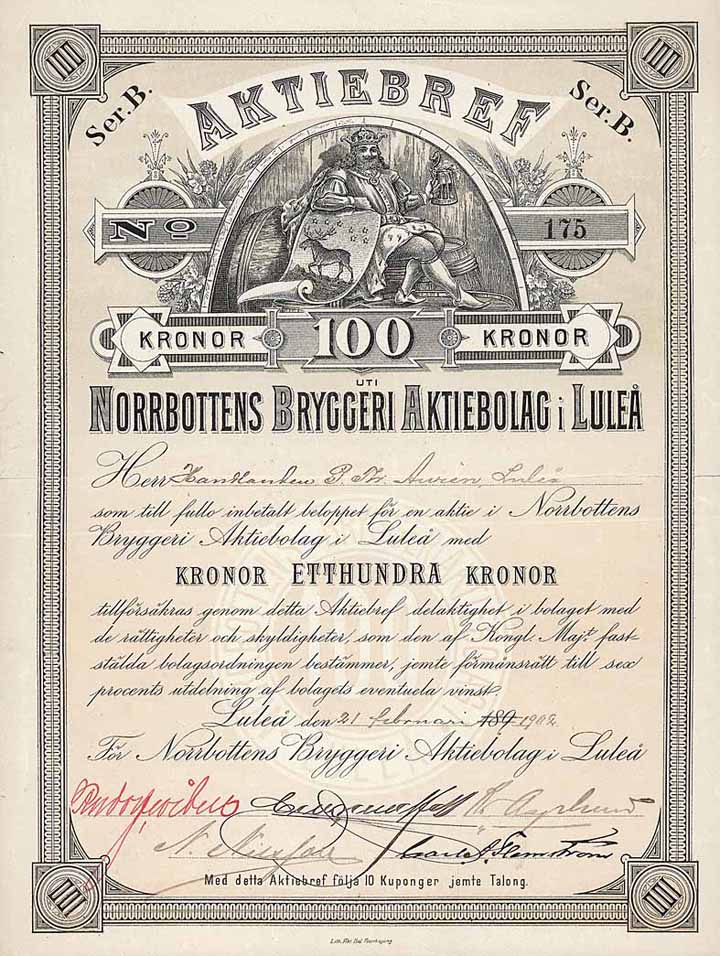 100 100
Ser. B. AKTIEBREF Ser. B.
No 175
KRONOR 100 KRONOR
UTI
NORRBOTTENS BRYGGERI AKTIEBOLAG i LULEÅ
Herr Handlanden P. Luleå
som till fullo inbetalt beloppet för en aktie i Norrbottens
Bryggeri Aktiebolag i Luleå med
KRONOR ETTHUNDRA KRONOR
tillförsäkras genom detta Aktiebref delaktighet i bolaget med
de rättigheter och skyldigheter, som den af Kongl. Majt. fast-
stälda bolagsordningen bestämmer, jemte förmånsrätt till sex
procents utdelning af bolagets eventuela vinst.
Luleå den 21 februari 189 1902
För Norrbottens Bryggeri Aktiebolag i Luleå
Med detta Aktiebref följa 10 Kuponger jemte Talong.
100 100